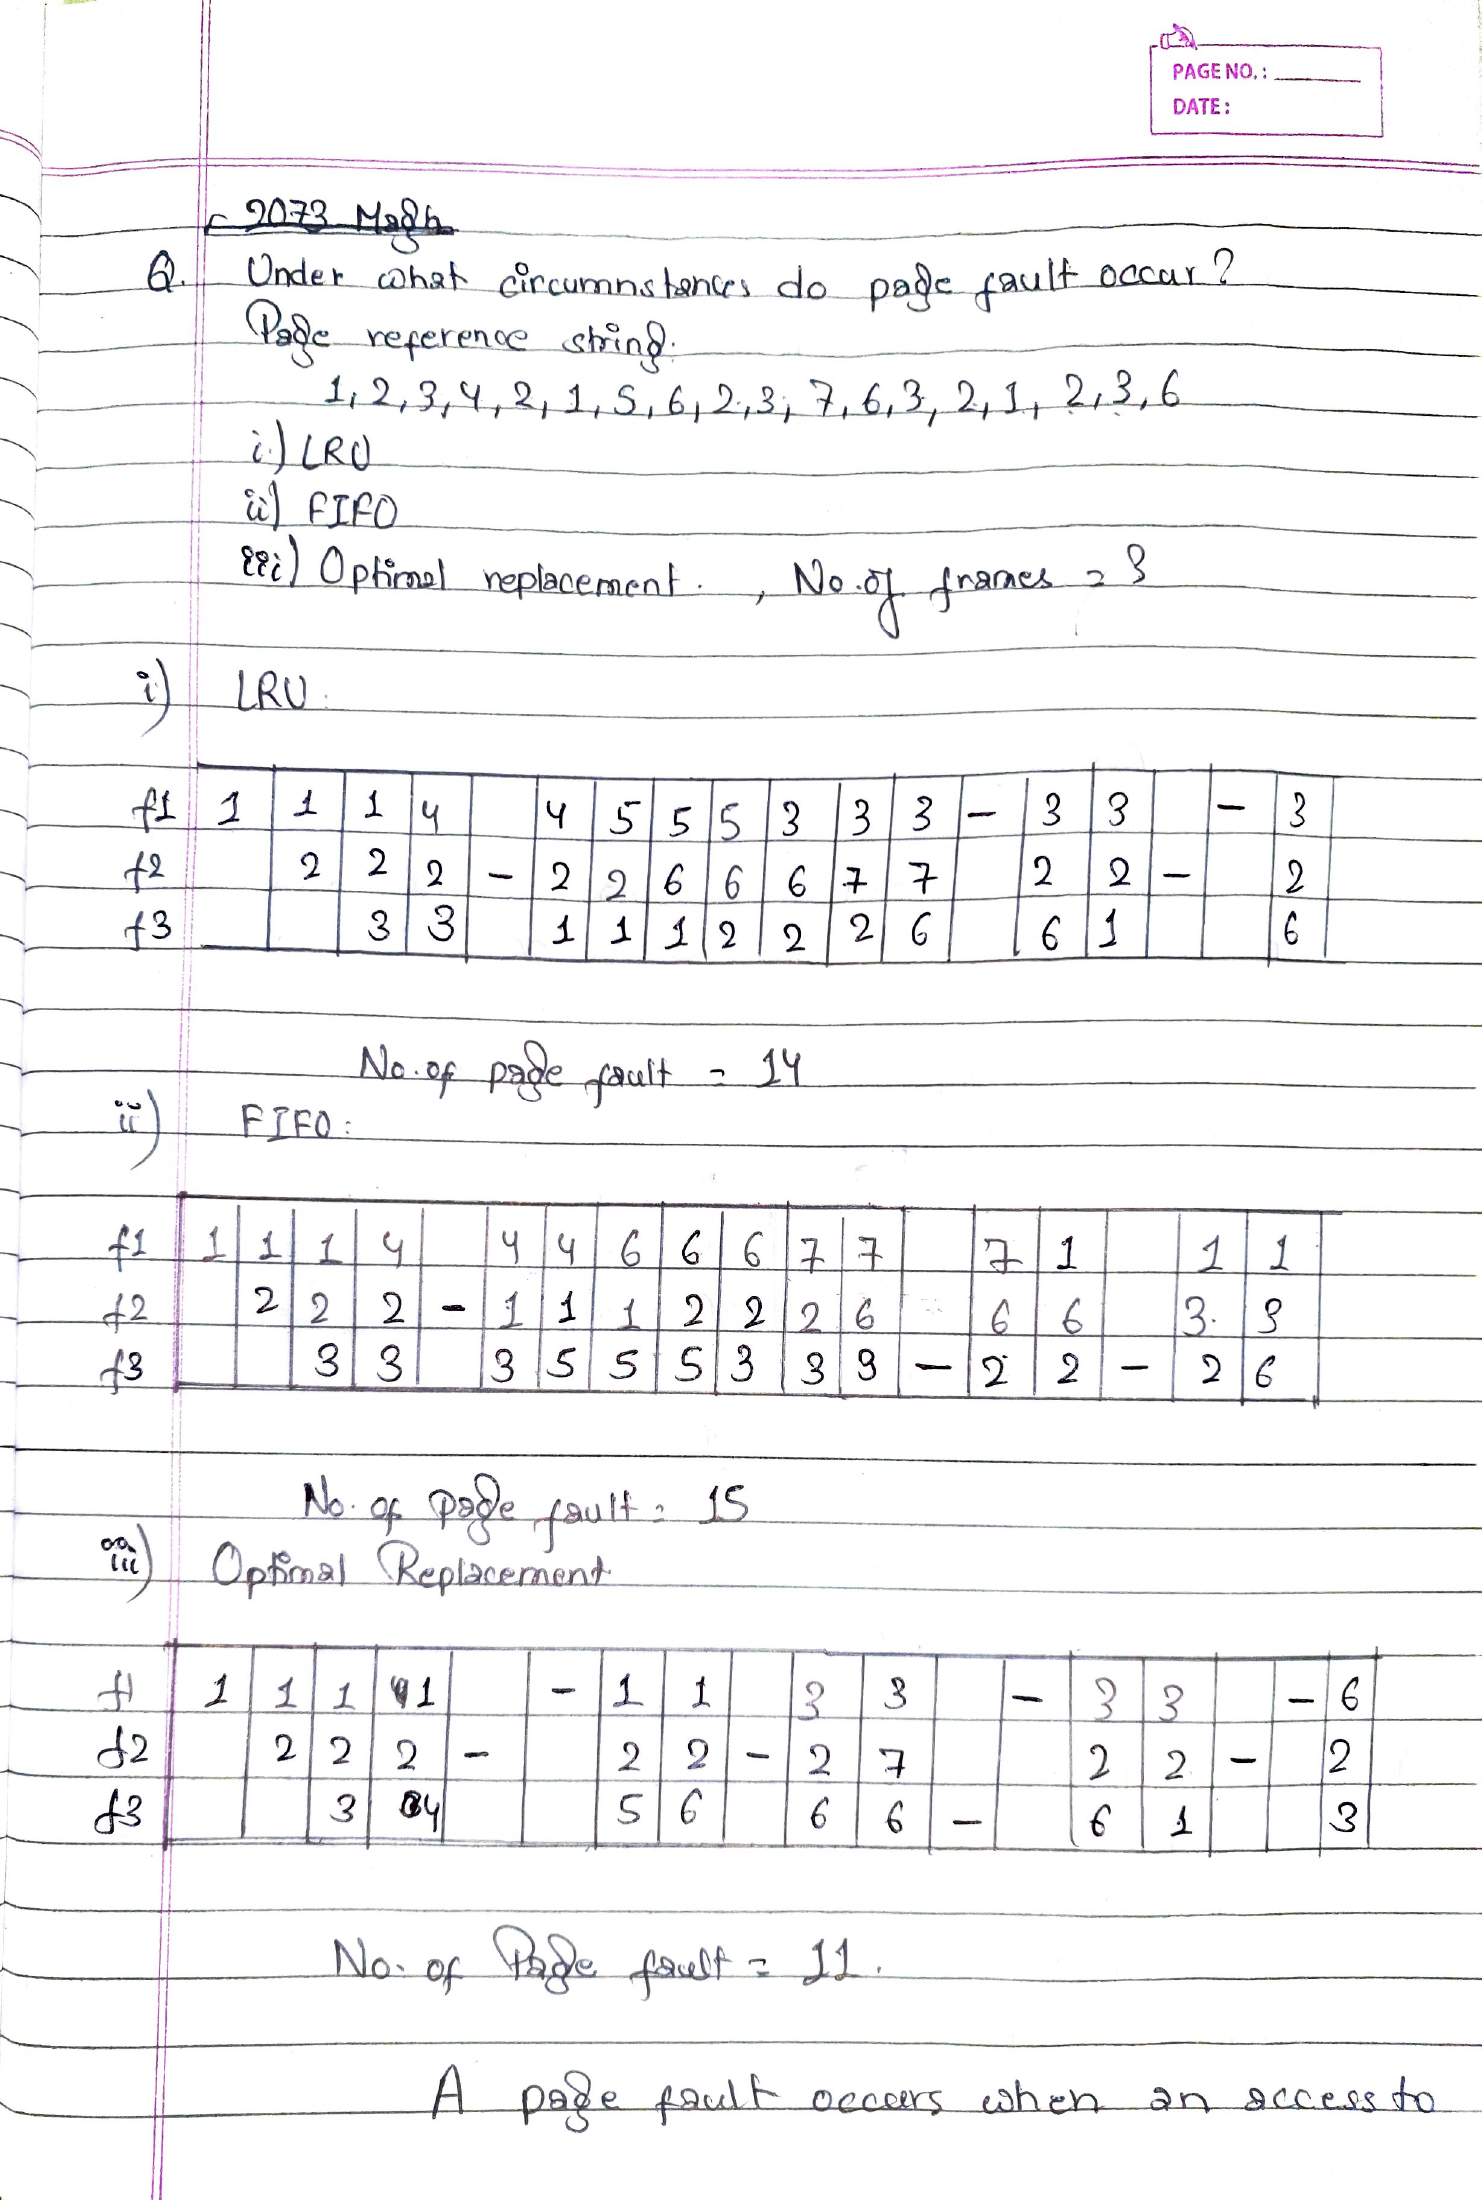 PAGE NO.:
DATE:
2073 Magh
Q. Under what circumnstances do page fault occur?
Page reference string.
1, 2, 3, 4, 2, 1, 5, 6, 2, 3, 7, 6, 3, 2, 1, 2, 3, 6
i.) LRU
ii) FIFO
iii) Optimal replacement. , No. of frames = 3
i) LRU.
f1 1 1 1 4 4 5 5 5 3 3 3 - 3 3 - 3
f2 2 2 2 - 2 2 6 6 6 7 7 2 2 - 2
f3 3 3 1 1 1 2 2 2 6 6 1 6
No. of page fault = 14
ii) FIFO:
f1 1 1 1 4 4 4 6 6 6 7 7 7 1 1 1
f2 2 2 2 - 1 1 1 2 2 2 6 6 6 3. 3
f3 3 3 3 5 5 5 3 3 3 - 2 2 - 2 6
No. of page fault = 15
iii) Optimal Replacement
f1 1 1 1 1 - 1 1 3 3 - 3 3 - 6
f2 2 2 2 - 2 2 - 2 7 2 2 - 2
f3 3 4 5 6 6 6 - 6 1 3
No. of Page fault = 11.
A page fault occurs when an access to